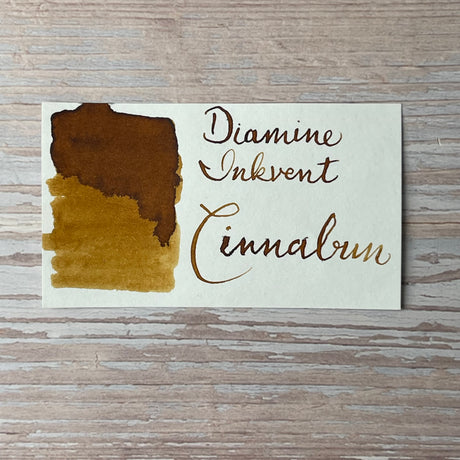 Diamine
Inkvent
Cinnabun